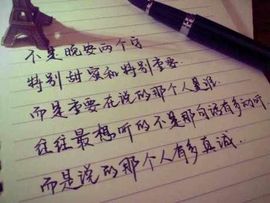 不是晚安两个字
特别甜蜜和特别重要.
而是重要在说的那个人是谁.
往往最想听的不是那句话有多动听
而是说的那个人有多真诚.